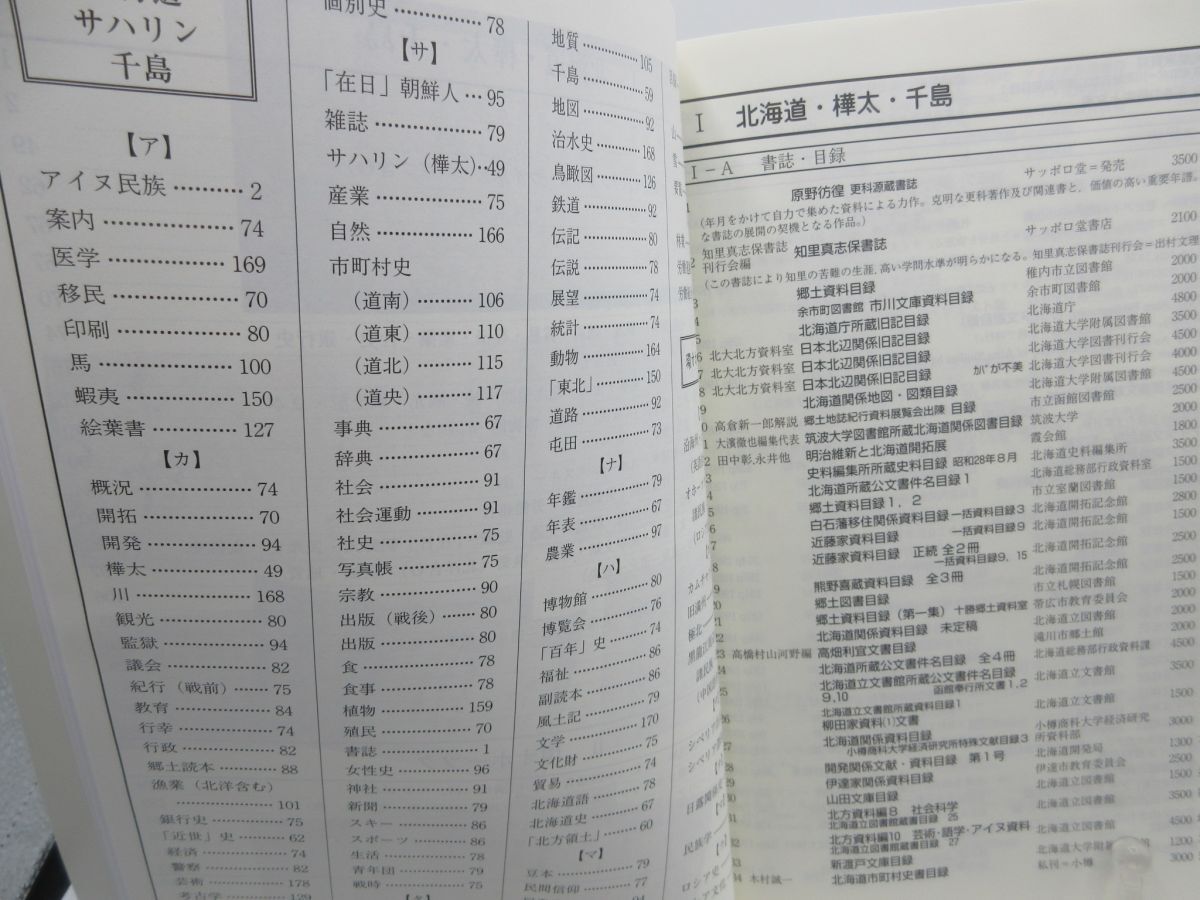 サハリン
千島
【ア】
アイヌ民族 ………… 2
案内 ………… 74
医学 ………… 169
移民 ………… 70
印刷 ………… 80
馬 ………… 100
蝦夷 ………… 150
絵葉書 ………… 127
【カ】
概況 ………… 74
開拓 ………… 70
開発 ………… 94
樺太 ………… 49
川 ………… 168
観光 ………… 80
監獄 ………… 94
議会 ………… 82
紀行（戦前） ………… 75
教育 ………… 84
行幸 ………… 74
行政 ………… 82
郷土読本 ………… 88
漁業（北洋含む）
………… 101
銀行史 ………… 75
「近世」史 ………… 62
経済 ………… 74
警察 ………… 82
芸術 ………… 178
考古学 ………… 129
個別史 ………… 78
【サ】
「在日」朝鮮人 … 95
雑誌 ………… 79
サハリン（樺太）‥49
産業 ………… 75
自然 ………… 166
市町村史
（道南） ………… 106
（道東） ………… 110
（道北） ………… 115
（道央） ………… 117
事典 ………… 67
辞典 ………… 67
社会 ………… 91
社会運動 ………… 91
社史 ………… 75
写真帳 ………… 75
宗教 ………… 90
出版（戦後） ………… 80
出版 ………… 80
食 ………… 78
食事 ………… 78
植物 ………… 159
殖民 ………… 70
書誌 ………… 1
女性史 ………… 96
神社 ………… 91
新聞 ………… 79
スキー ………… 86
スポーツ ………… 86
生活 ………… 78
青年団 ………… 79
戦時 ………… 75
地質 ………… 105
千島 ………… 59
地図 ………… 92
治水史 ………… 168
鳥瞰図 ………… 126
鉄道 ………… 92
伝記 ………… 80
伝説 ………… 78
展望 ………… 74
統計 ………… 74
動物 ………… 164
「東北」 ………… 150
道路 ………… 92
屯田 ………… 73
【ナ】
年鑑 ………… 79
年表 ………… 67
農業 ………… 97
【ハ】
博物館 ………… 80
博覧会 ………… 76
「百年」史 ………… 74
福祉 ………… 86
副読本 ………… 86
風土記 ………… 79
文学 ………… 170
文化財 ………… 75
貿易 ………… 74
北海道語 ………… 78
北海道史 ………… 67
「北方領土」 ………… 60
【マ】
豆本 ………… 79
民間信仰 ………… 77
I　北海道・樺太・千島
I－A　書誌・目録
原野彷徨 更科源蔵書誌　サッポロ堂＝発売　3500
（年月をかけて自力で集めた資料による力作。克明な更科著作及び関連書と、価値の高い重要年譜。
な書誌の展開の契機となる作品。）
知里真志保書誌刊行会編　知里真志保書誌　サッポロ堂書店　2100
（この書誌により知里の苦難の生涯, 高い学問水準が明らかになる。知里真志保書誌刊行会＝出村文理
郷土資料目録　稚内市立図書館　2000
余市町図書館 市川文庫資料目録　余市町図書館　2000
北海道庁所蔵旧記目録　北海道庁　4800
北大北方資料室 日本北辺関係旧記目録　北海道大学附属図書館　3500
北大北方資料室 日本北辺関係旧記目録　北海道大学図書刊行会　4500
北大北方資料室 日本北辺関係旧記目録　カバが不美　北海道大学図書刊行会　4000
北海道関係地図・図類目録　北海道大学附属図書館　4500
高倉新一郎解説 郷土地誌紀行資料展覧会出陳 目録　市立函館図書館　2500
大濱徹也編集代表 筑波大学図書館所蔵北海道関係図書目録　筑波大学　2000
田中彰,永井他 明治維新と北海道開拓展　霞会館　1800
史料編集所所蔵史料目録 昭和28年8月　北海道史料編集所　3500
北海道所蔵公文書件名目録1　北海道総務部行政資料室　1500
郷土資料目録1, 2　市立室蘭図書館　2000
白石藩移住関係資料目録 一括資料目録3　北海道開拓記念館　2800
近藤家資料目録　一括資料目録9　北海道開拓記念館　1500
近藤家資料目録　正続 全2冊　一括資料目録9, 15　北海道開拓記念館　2500
熊野喜蔵資料目録　全3冊　北海道開拓記念館　2500
郷土図書目録　市立札幌図書館　1500
郷土資料目録（第一集） 十勝郷土資料室　帯広市教育委員会　2000
北海道関係資料目録　未定稿　北海道立図書館　2000
高橋村山河野編 高畑利宜文書目録　滝川市郷土館　2000
北海道所蔵公文書件名目録　全4冊　北海道総務部行政資料課　4500
北海道立文書館所蔵公文書件名目録 9,10　函館奉行所文書1, 2　北海道立文書館　3500
北海道立文書館所蔵資料目録1
柳田家資料(1)文書　北海道立文書館　1500
北海道関係資料目録　小樽商科大学経済研究所特殊文献目録3　小樽商科大学経済研究所資料部　3000
開発関係文献・資料目録　第1号　北海道開発局　1300
伊達家関係資料目録　伊達市教育委員会　2500
山田文庫目録　北海道立図書館　1500
北方資料編8　社会科学　北海道立図書館蔵書目録 25　北海道立図書館　3500
北方資料編10　芸術・語学・アイヌ資料　北海道立図書館蔵書目録 27　北海道立図書館　4500
新渡戸文庫目録　北海道大学附属　1200
木村誠一 北海道市町村史書目録　私刊＝小樽　3000